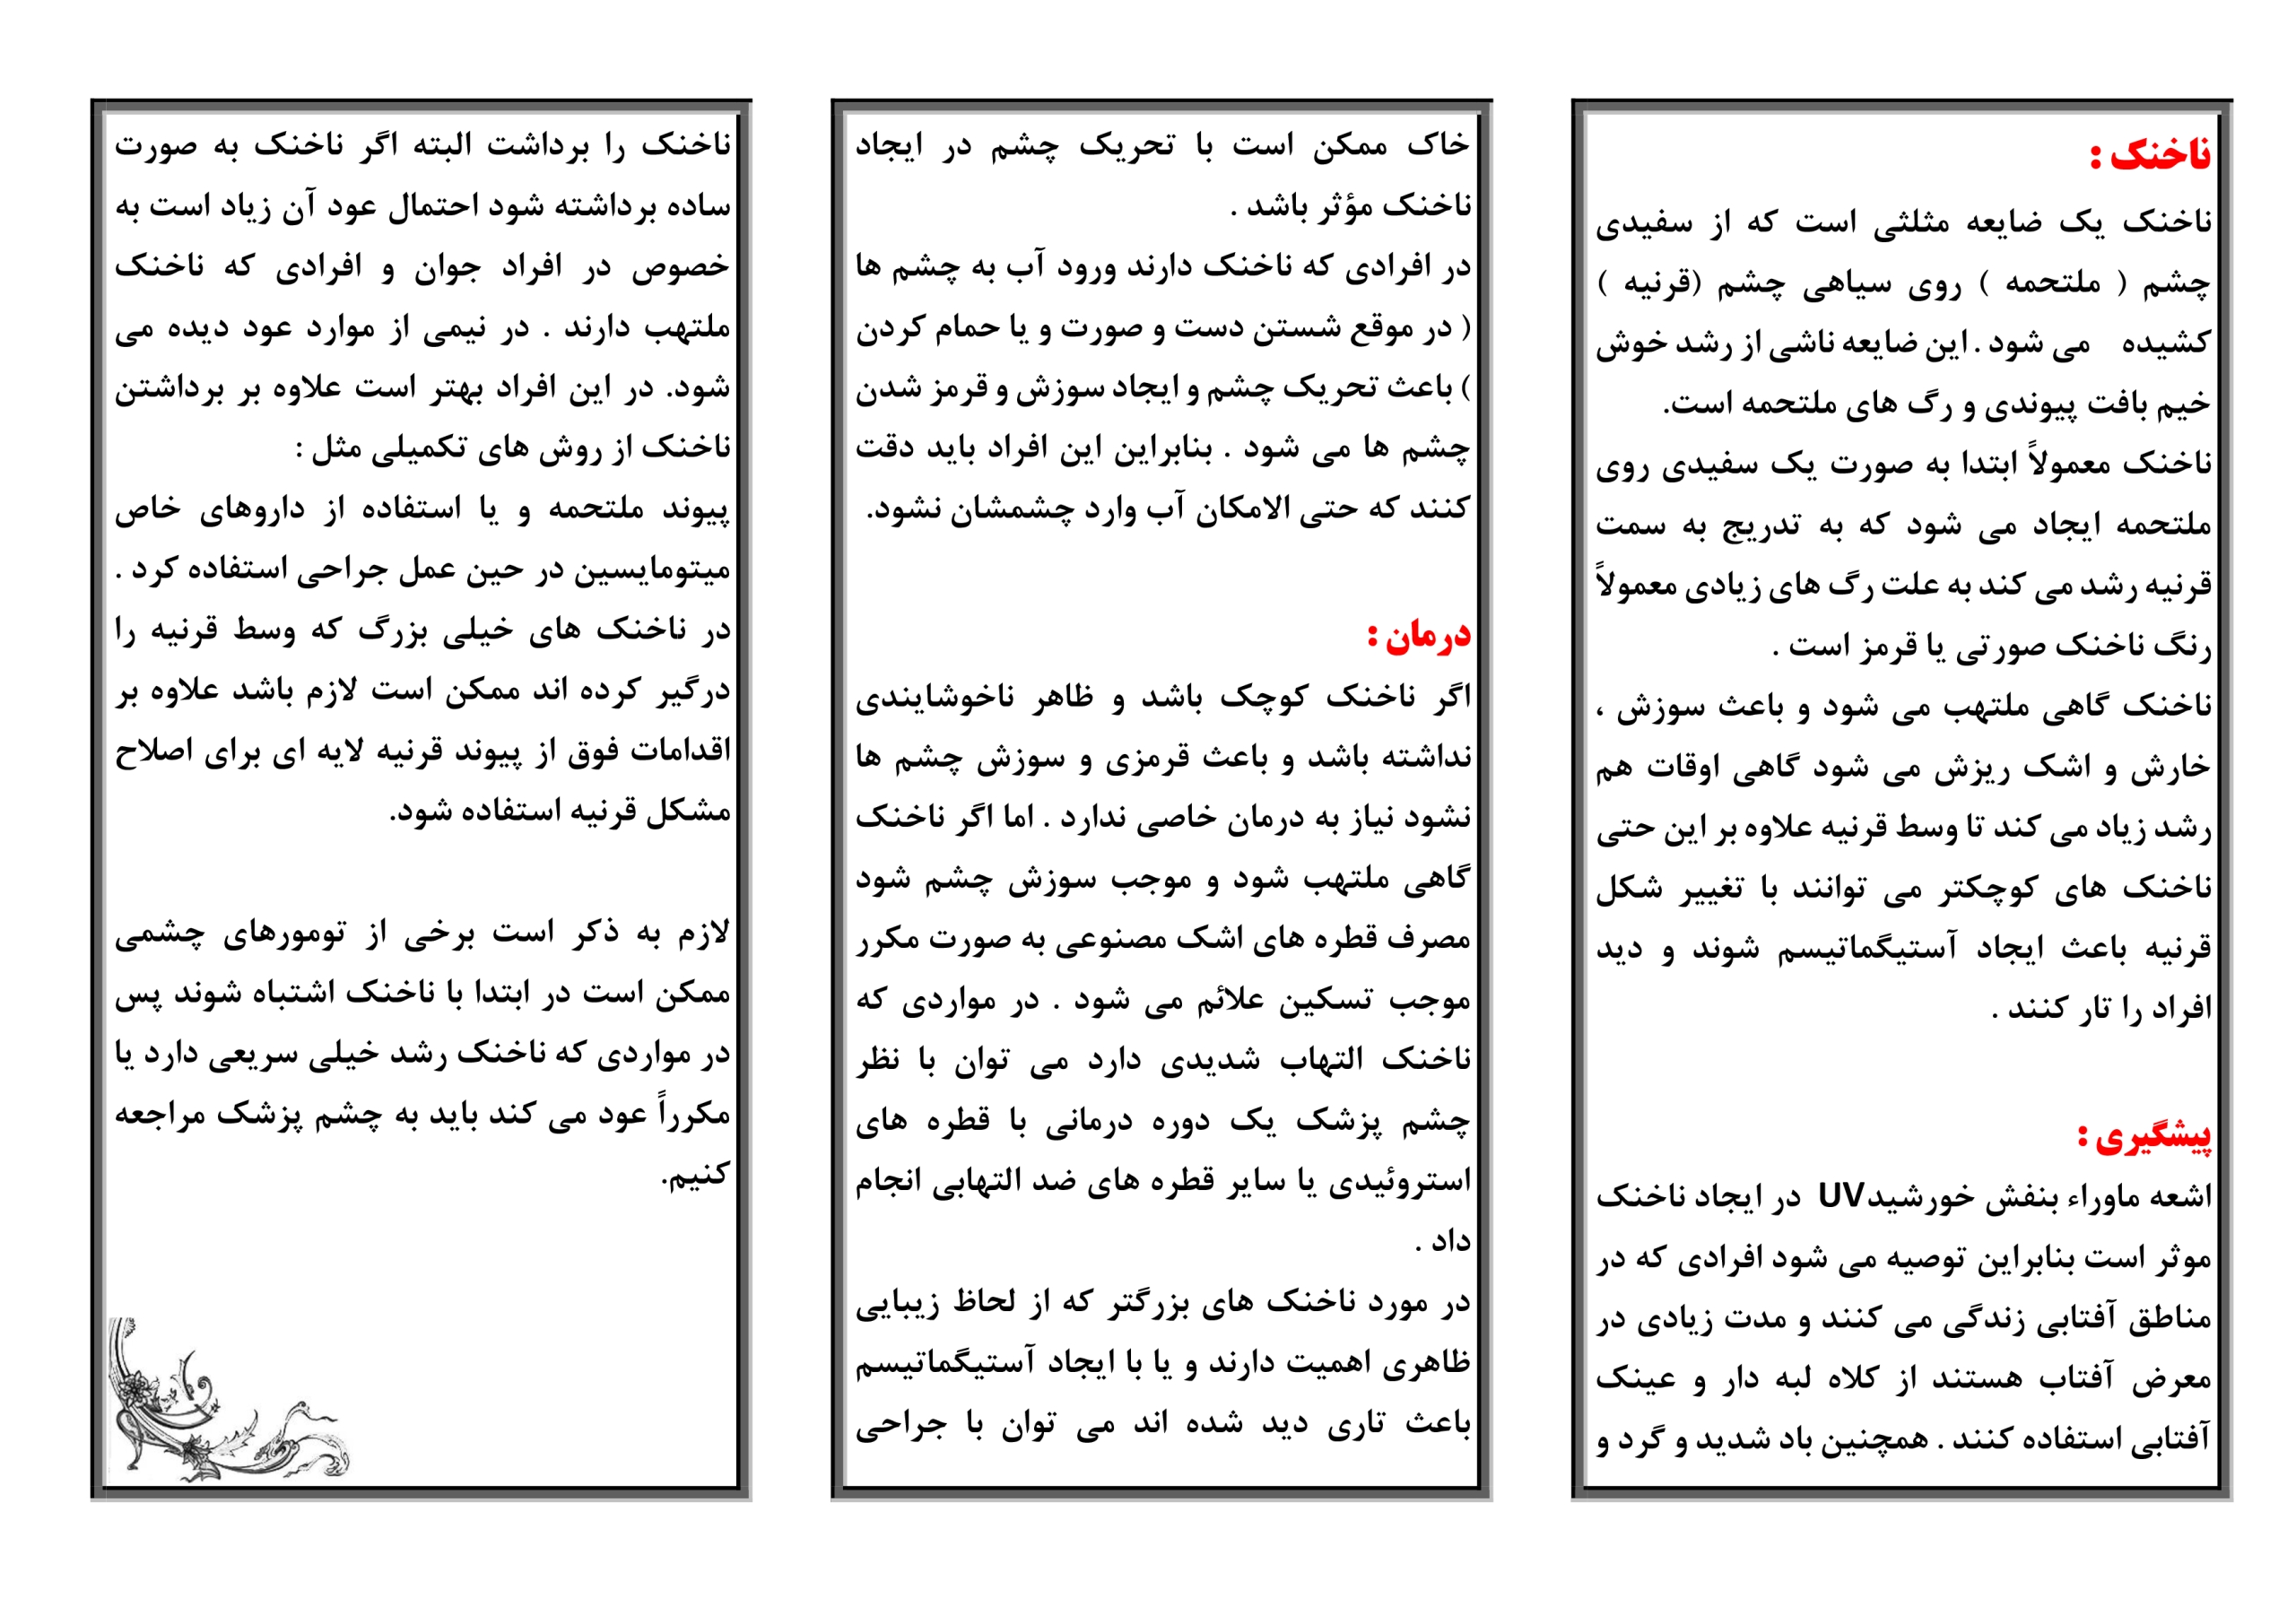 ناخنک :
ناخنک یک ضایعه مثلثی است که از سفیدی
چشم ( ملتحمه ) روی سیاهی چشم (قرنیه )
کشیده می شود . این ضایعه ناشی از رشد خوش
خیم بافت پیوندی و رگ های ملتحمه است.
ناخنک معمولاً ابتدا به صورت یک سفیدی روی
ملتحمه ایجاد می شود که به تدریج به سمت
قرنیه رشد می کند به علت رگ های زیادی معمولاً
رنگ ناخنک صورتی یا قرمز است .
ناخنک گاهی ملتهب می شود و باعث سوزش ،
خارش و اشک ریزش می شود گاهی اوقات هم
رشد زیاد می کند تا وسط قرنیه علاوه بر این حتی
ناخنک های کوچکتر می توانند با تغییر شکل
قرنیه باعث ایجاد آستیگماتیسم شوند و دید
افراد را تار کنند .
پیشگیری :
اشعه ماوراء بنفش خورشیدUV در ایجاد ناخنک
موثر است بنابراین توصیه می شود افرادی که در
مناطق آفتابی زندگی می کنند و مدت زیادی در
معرض آفتاب هستند از کلاه لبه دار و عینک
آفتابی استفاده کنند . همچنین باد شدید و گرد و
خاک ممکن است با تحریک چشم در ایجاد
ناخنک مؤثر باشد .
در افرادی که ناخنک دارند ورود آب به چشم ها
( در موقع شستن دست و صورت و یا حمام کردن
) باعث تحریک چشم و ایجاد سوزش و قرمز شدن
چشم ها می شود . بنابراین این افراد باید دقت
کنند که حتی الامکان آب وارد چشمشان نشود.
درمان :
اگر ناخنک کوچک باشد و ظاهر ناخوشایندی
نداشته باشد و باعث قرمزی و سوزش چشم ها
نشود نیاز به درمان خاصی ندارد . اما اگر ناخنک
گاهی ملتهب شود و موجب سوزش چشم شود
مصرف قطره های اشک مصنوعی به صورت مکرر
موجب تسکین علائم می شود . در مواردی که
ناخنک التهاب شدیدی دارد می توان با نظر
چشم پزشک یک دوره درمانی با قطره های
استروئیدی یا سایر قطره های ضد التهابی انجام
داد .
در مورد ناخنک های بزرگتر که از لحاظ زیبایی
ظاهری اهمیت دارند و یا با ایجاد آستیگماتیسم
باعث تاری دید شده اند می توان با جراحی
ناخنک را برداشت البته اگر ناخنک به صورت
ساده برداشته شود احتمال عود آن زیاد است به
خصوص در افراد جوان و افرادی که ناخنک
ملتهب دارند . در نیمی از موارد عود دیده می
شود. در این افراد بهتر است علاوه بر برداشتن
ناخنک از روش های تکمیلی مثل :
پیوند ملتحمه و یا استفاده از داروهای خاص
میتومایسین در حین عمل جراحی استفاده کرد .
در ناخنک های خیلی بزرگ که وسط قرنیه را
درگیر کرده اند ممکن است لازم باشد علاوه بر
اقدامات فوق از پیوند قرنیه لایه ای برای اصلاح
مشکل قرنیه استفاده شود.
لازم به ذکر است برخی از تومورهای چشمی
ممکن است در ابتدا با ناخنک اشتباه شوند پس
در مواردی که ناخنک رشد خیلی سریعی دارد یا
مکرراً عود می کند باید به چشم پزشک مراجعه
کنیم.